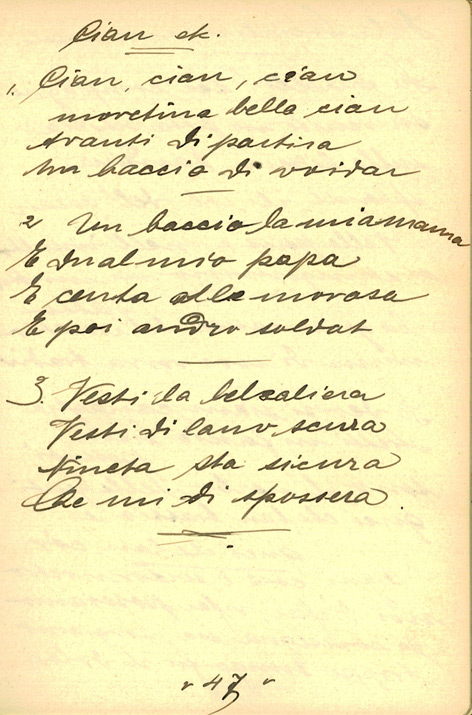 Cian ek.
1. Cian, cian, cian
moretina bella cian
Avanti di partira
Un baccio di vvidar
2 Un baccio la mia mama
E dual mio papa
E centa alle morosa
E poi andro soldat
3. Vesti da belzaliera
Vesti di lano scura
Nineta sta sicura
Che mi di spossera.
47